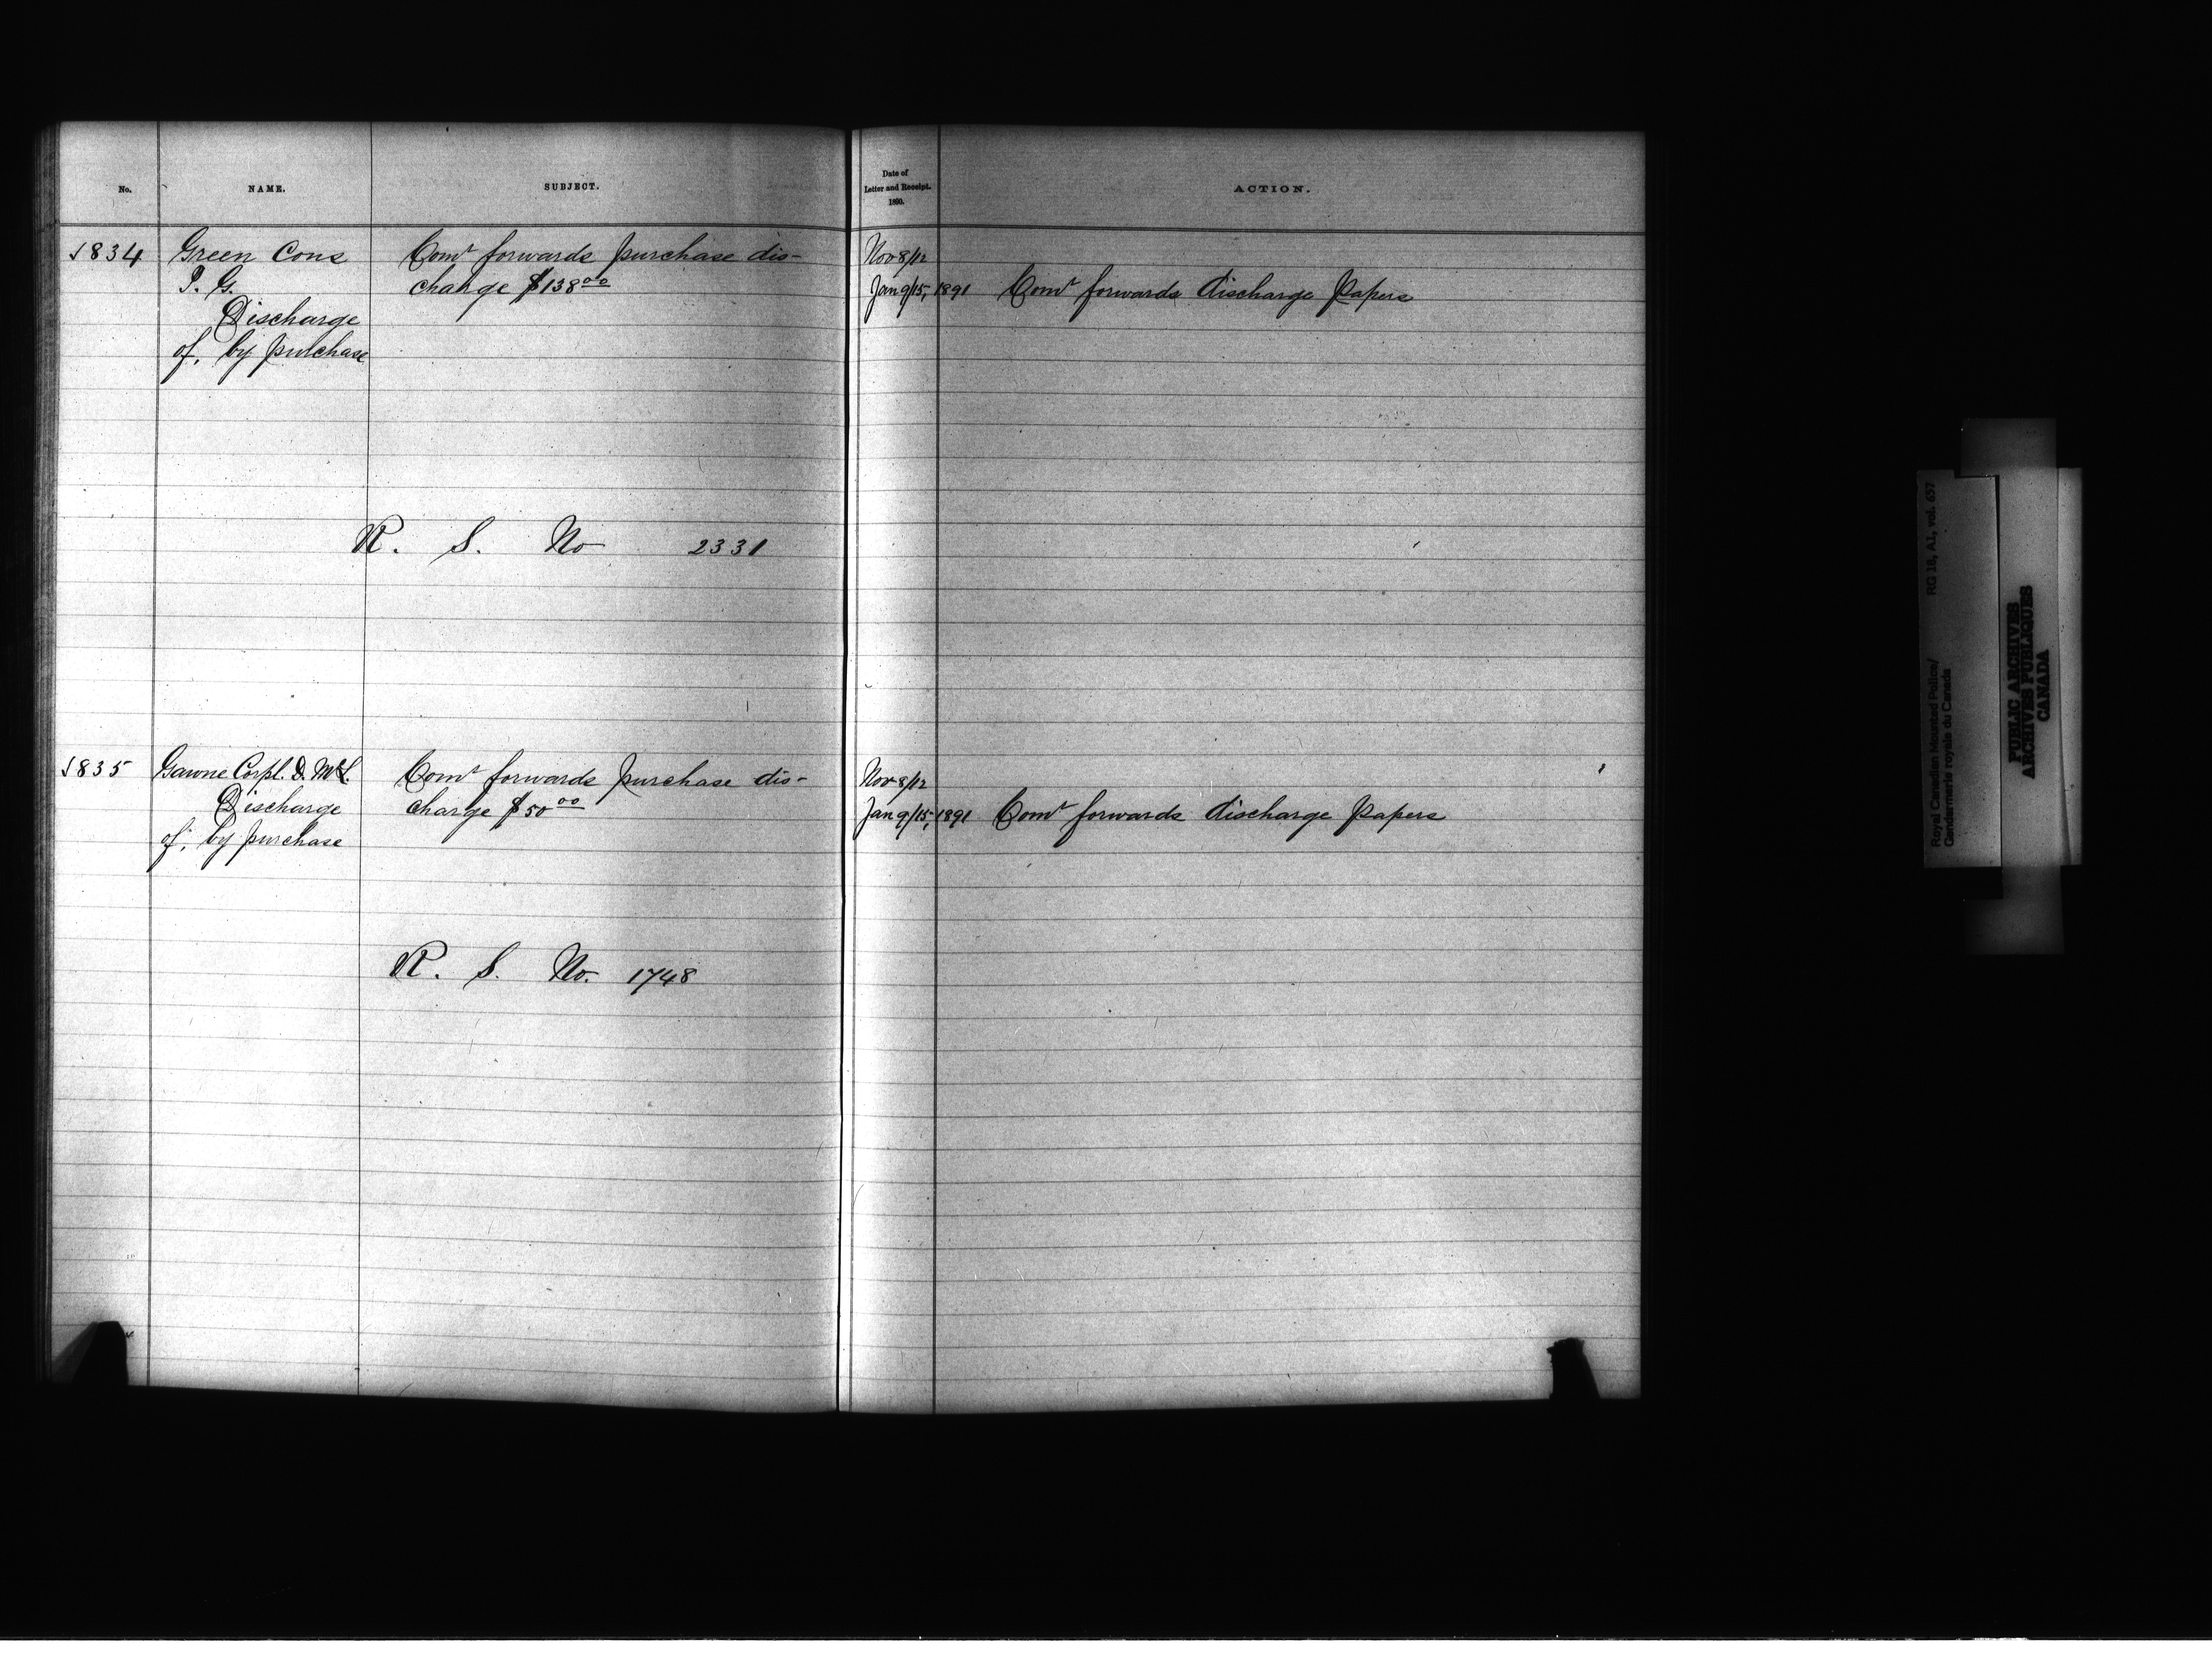 No.
NAME.
SUBJECT.
1834
Green Cons
P. G.
Discharge
of, by purchase
Comr forwards purchase dis-
charge $138 00
R. S. No 2331
1835
Gawne Corpl. D. McL.
Discharge
of, by purchase
Comr forwards purchase dis-
charge $50 00
R. S. No. 1748
Date of
Letter and Receipt.
1890.
ACTION.
Nov 8/12
Jan 9/15, 1891 Comr forwards discharge Papers
Nov 8/12
Jan 9/15, 1891 Comr forwards discharge Papers
Royal Canadian Mounted Police/ RG 18, A1, vol. 657
Gendarmerie royale du Canada
PUBLIC ARCHIVES
ARCHIVES PUBLIQUES
CANADA